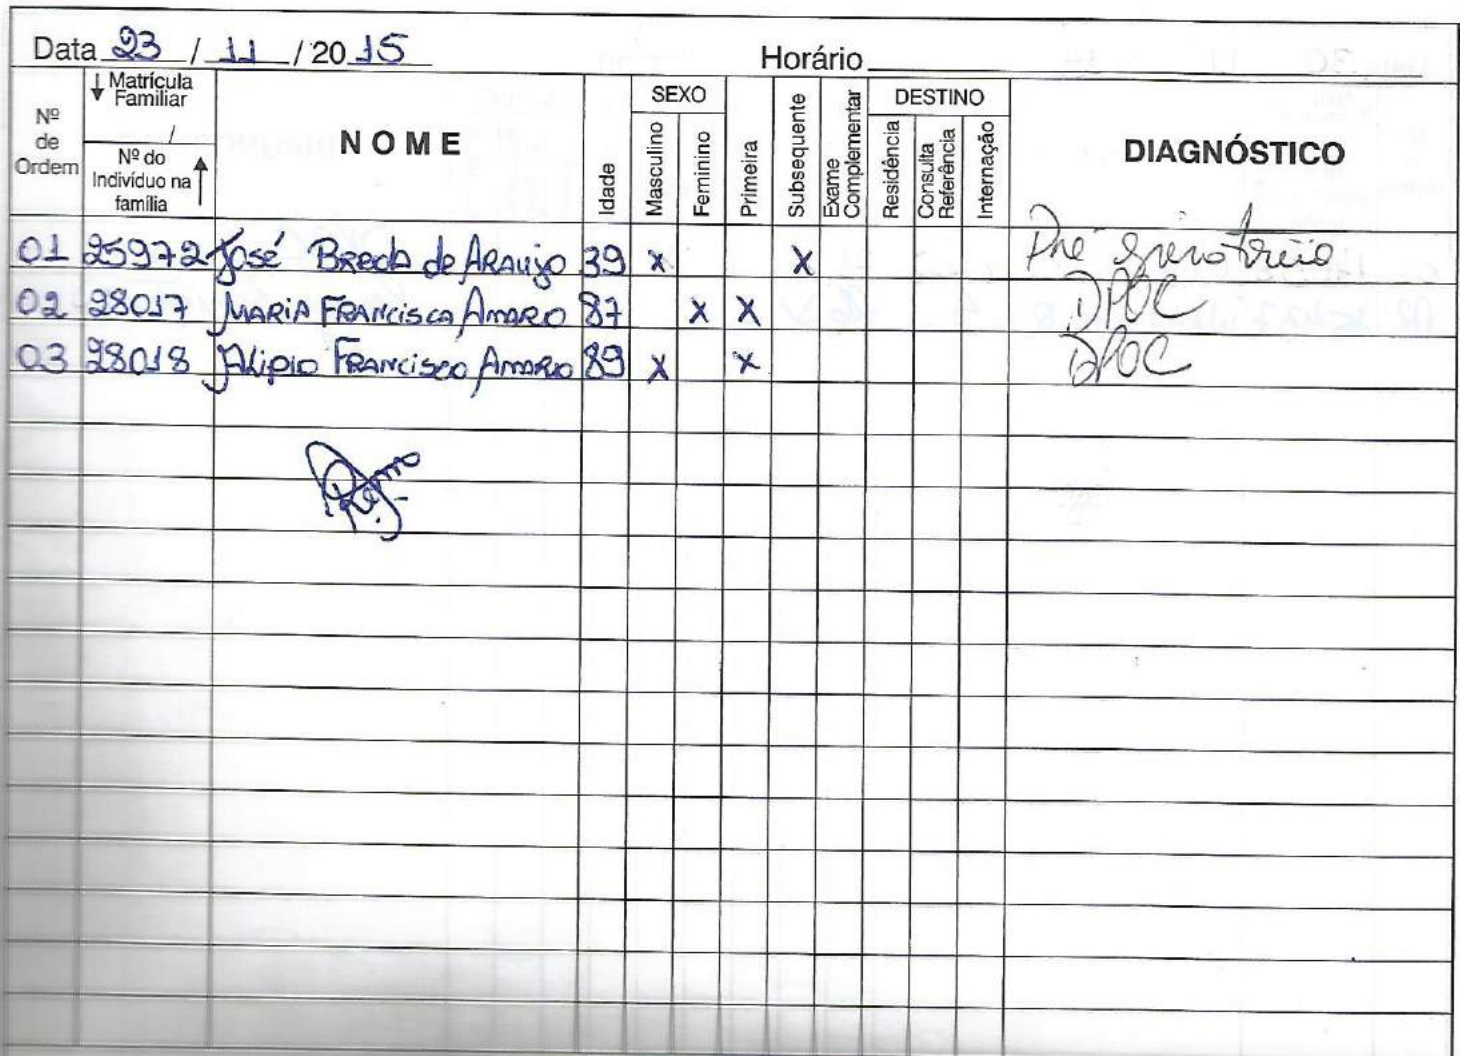 Data 23 / 11 / 20 15 Horário
Nº de Ordem
↓ Matrícula Familiar
/
Nº do Indivíduo na família ↑
NOME
Idade
SEXO
Masculino
Feminino
Primeira
Subsequente
Exame Complementar
DESTINO
Residência
Consulta Referência
Internação
DIAGNÓSTICO
01 25972 José Breda de Araujo 39 x x Pré
02 28017 Maria Francisca Amaro 87 x x DPOC
03 28018 Alipio Francisco Amaro 89 x x DPOC